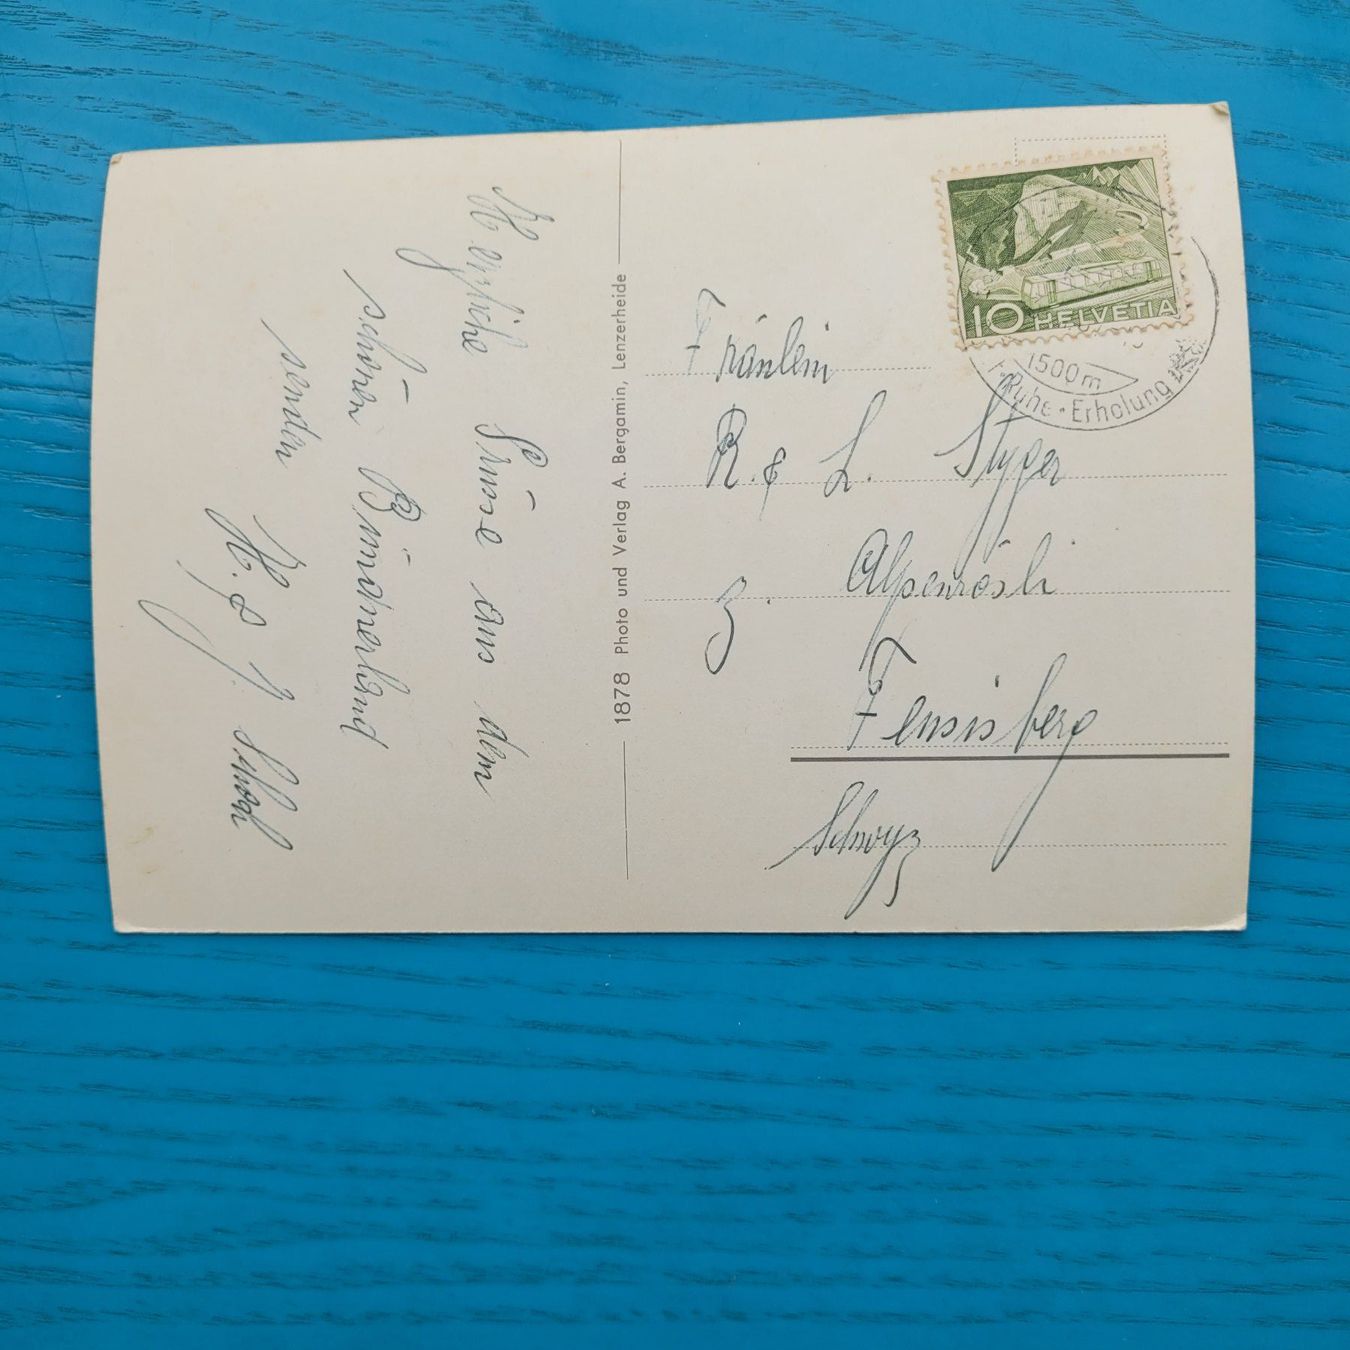 Herzliche Grüsse aus dem
schönen Bündnerland
senden
H. & J.
1878 Photo und Verlag A. Bergamin, Lenzerheide
10 HELVETIA
1500 m
Ruhe · Erholung
Fräulein
R. & L. Styger
z. Alpenrösli
Feusisberg
Schwyz